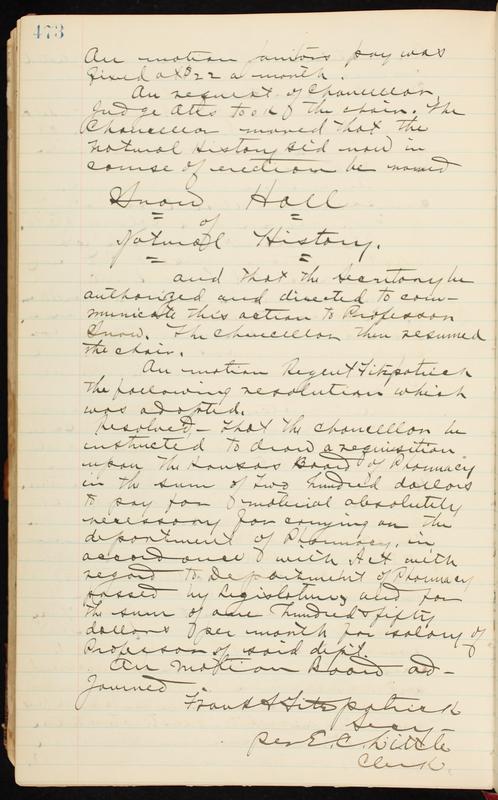 473
On motion janitors pay was
fixed at $22 a month.
On request of Chancellor,
Judge Atls took the chair. The
Chancellor moved that the
Natural History b'ld now in
course of erection be named
Snow Hall
of
Natural History.
and that the Secretary be
authorized and directed to com-
municate this action to Professor
Snow. The Chancellor then resumed
the chair.
On motion Regent Fitzpatrick
the following resolution which
was adopted.
Resolved, - That the Chancellor be
instructed to draw a requisition
upon the Kansas Board of Pharmacy
in the sum of two hundred dollars
to pay for material absolutely
necessary for carrying on the
department of Pharmacy, in
accordance with Act with
regard to Department of Pharmacy
passed by Legislature, and for
the sum of one hundred & fifty
dollars per month for salary of
Professor of said dept.
On motion Board ad-
journed
Frank A Fitzpatrick
Secy
per E. C. Little
Clerk.